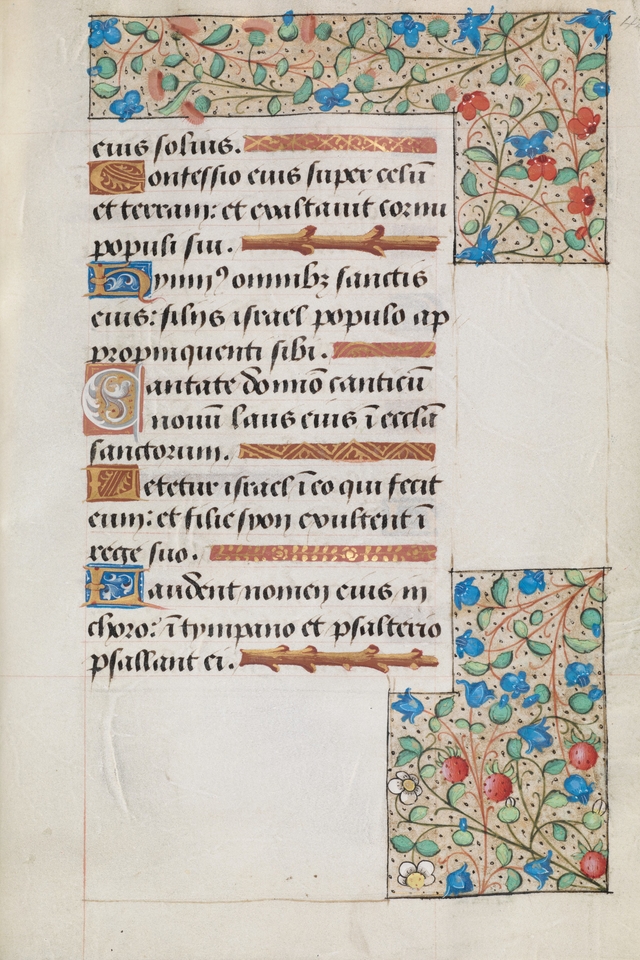 eius solius.
Confessio eius super celū
et terram: et exaltauit cornu
populi sui.
Hymnꝰ omnibꝫ sanctis
eius: filijs israel populo ap
propinquenti sibi.
Cantate domīo canticū
nouū laus eius ī ecclīa
sanctorum.
Letetur israel ī eo qui fecit
eum: et filie syon exultent ī
rege suo.
Laudent nomen eius in
choro: ī tympano et psalterio
psallant ei.